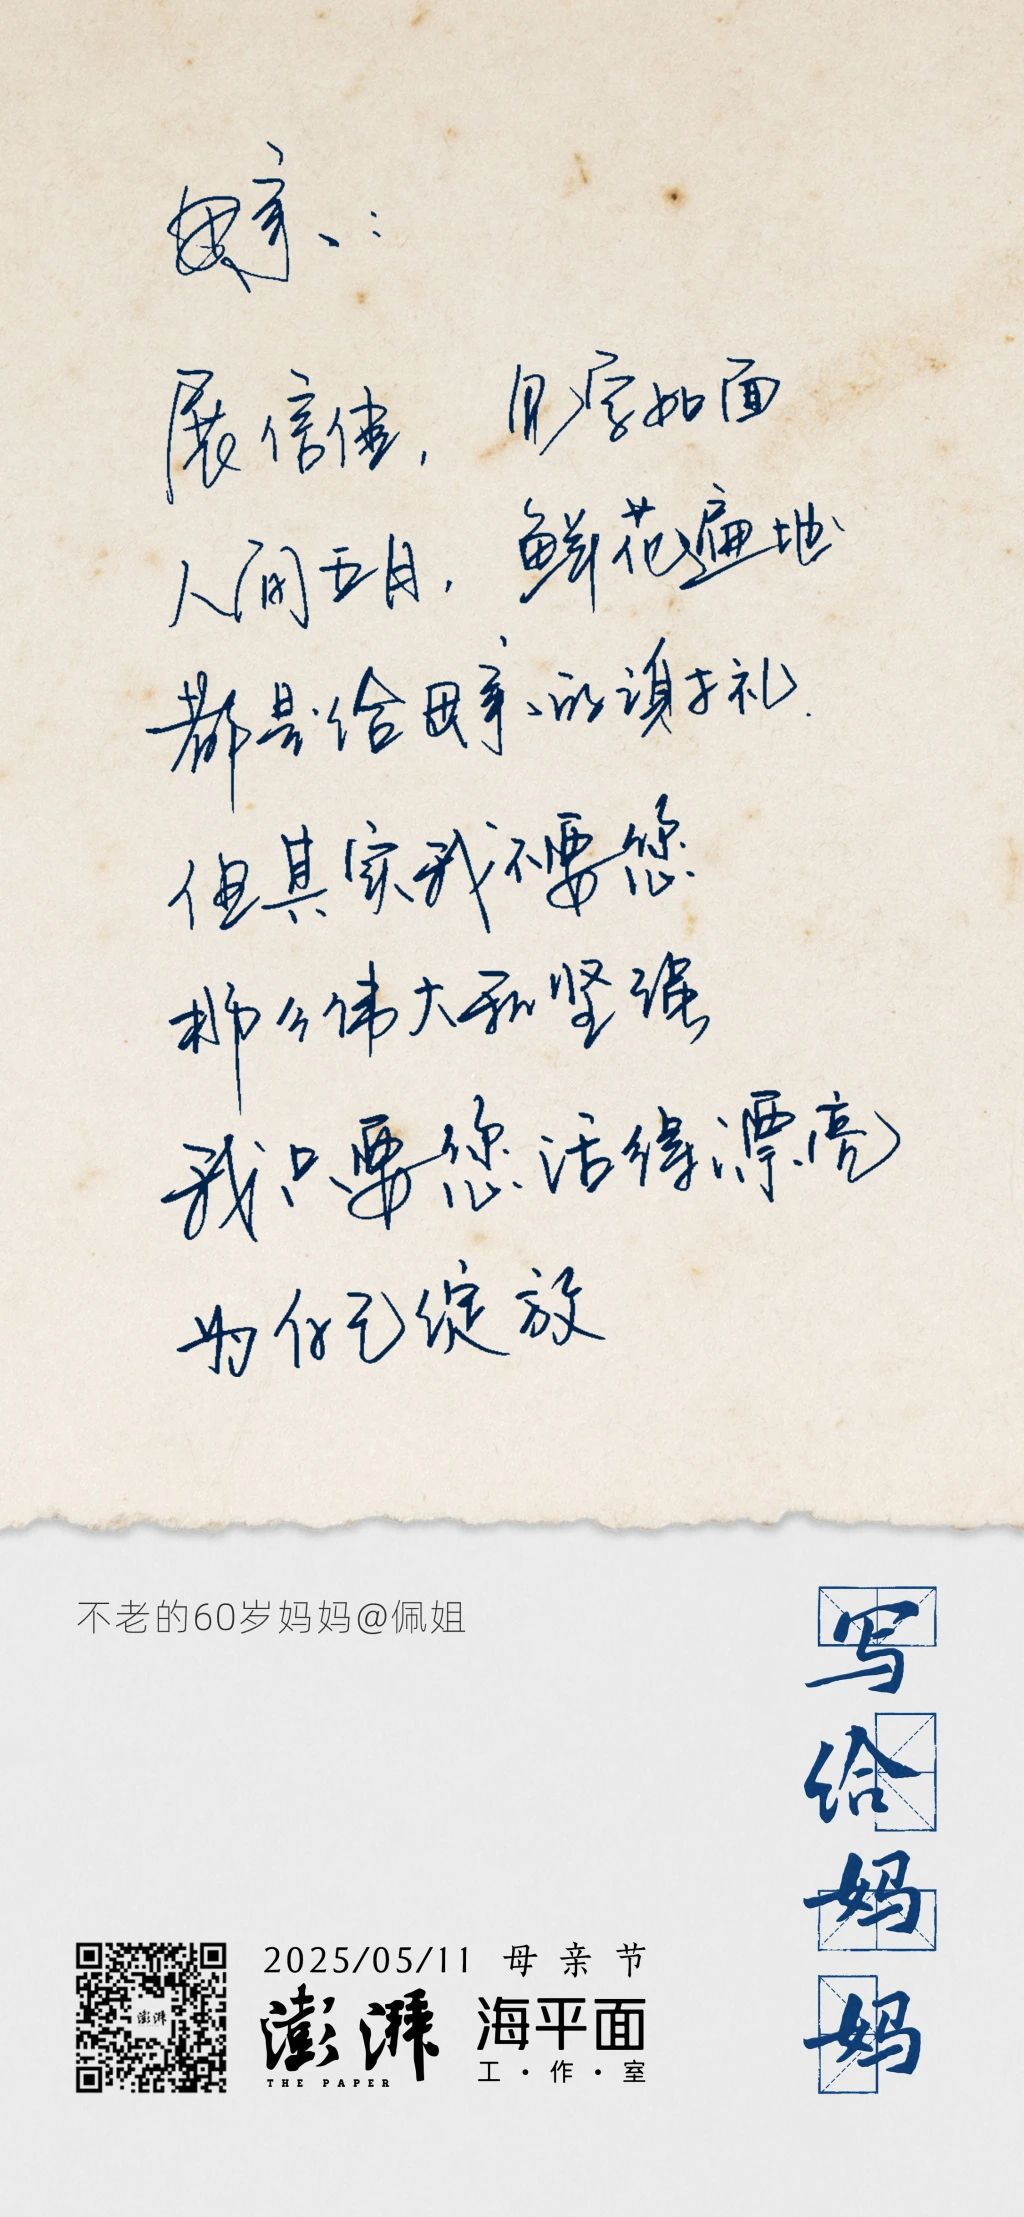 母亲:
展信佳,见字如面
人间五月,鲜花遍地
都是给母亲的谢礼.
但其实我不要您
那么伟大和坚强
我只要您活得漂亮
为自己绽放
不老的60岁妈妈@佩姐
写给妈妈
2025/05/11 母亲节
澎湃
THE PAPER
海平面
工·作·室
澎湃